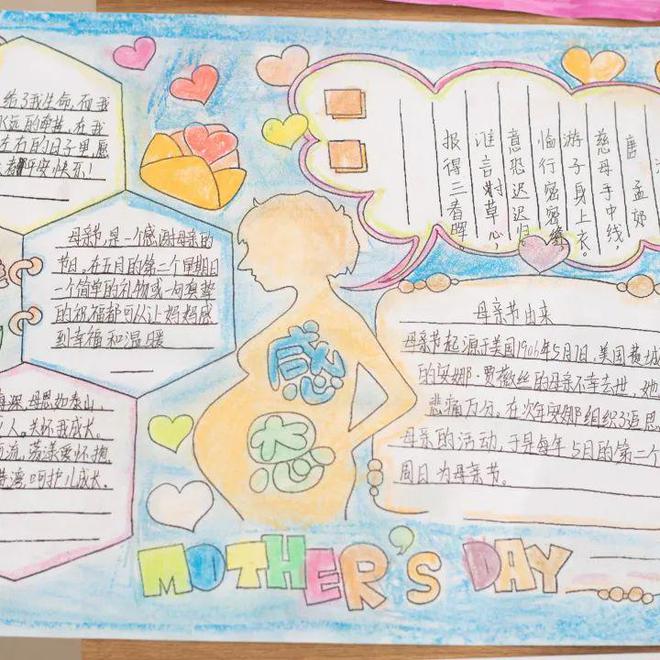 给了我生命,而我
永远的牵挂,在我
左右的日子里愿
平安快乐!
唐 孟郊
慈母手中线,
游子身上衣。
临行密密缝,
意恐迟迟归
谁言射草心,
报得三看晖
母亲节,是一个感谢母亲的
节日,在五月的第二个星期日
一个简单的礼物或一句真挚
的祝福都可以让妈妈感
到幸福和温暖
感
恩
母亲节由来
母亲节起源于美国1906年5月7日,美国黄城
的安娜·贾薇丝的母亲不幸去世,她
悲痛万分,在次年安娜组织了追思
母亲的活动,于是每年5月的第二个
周日为母亲节。
海深,母恩如泰山
人。关怀我成长。
流,荡漾爱怀抱
港湾,呵护儿成长。
MOTHER'S DAY